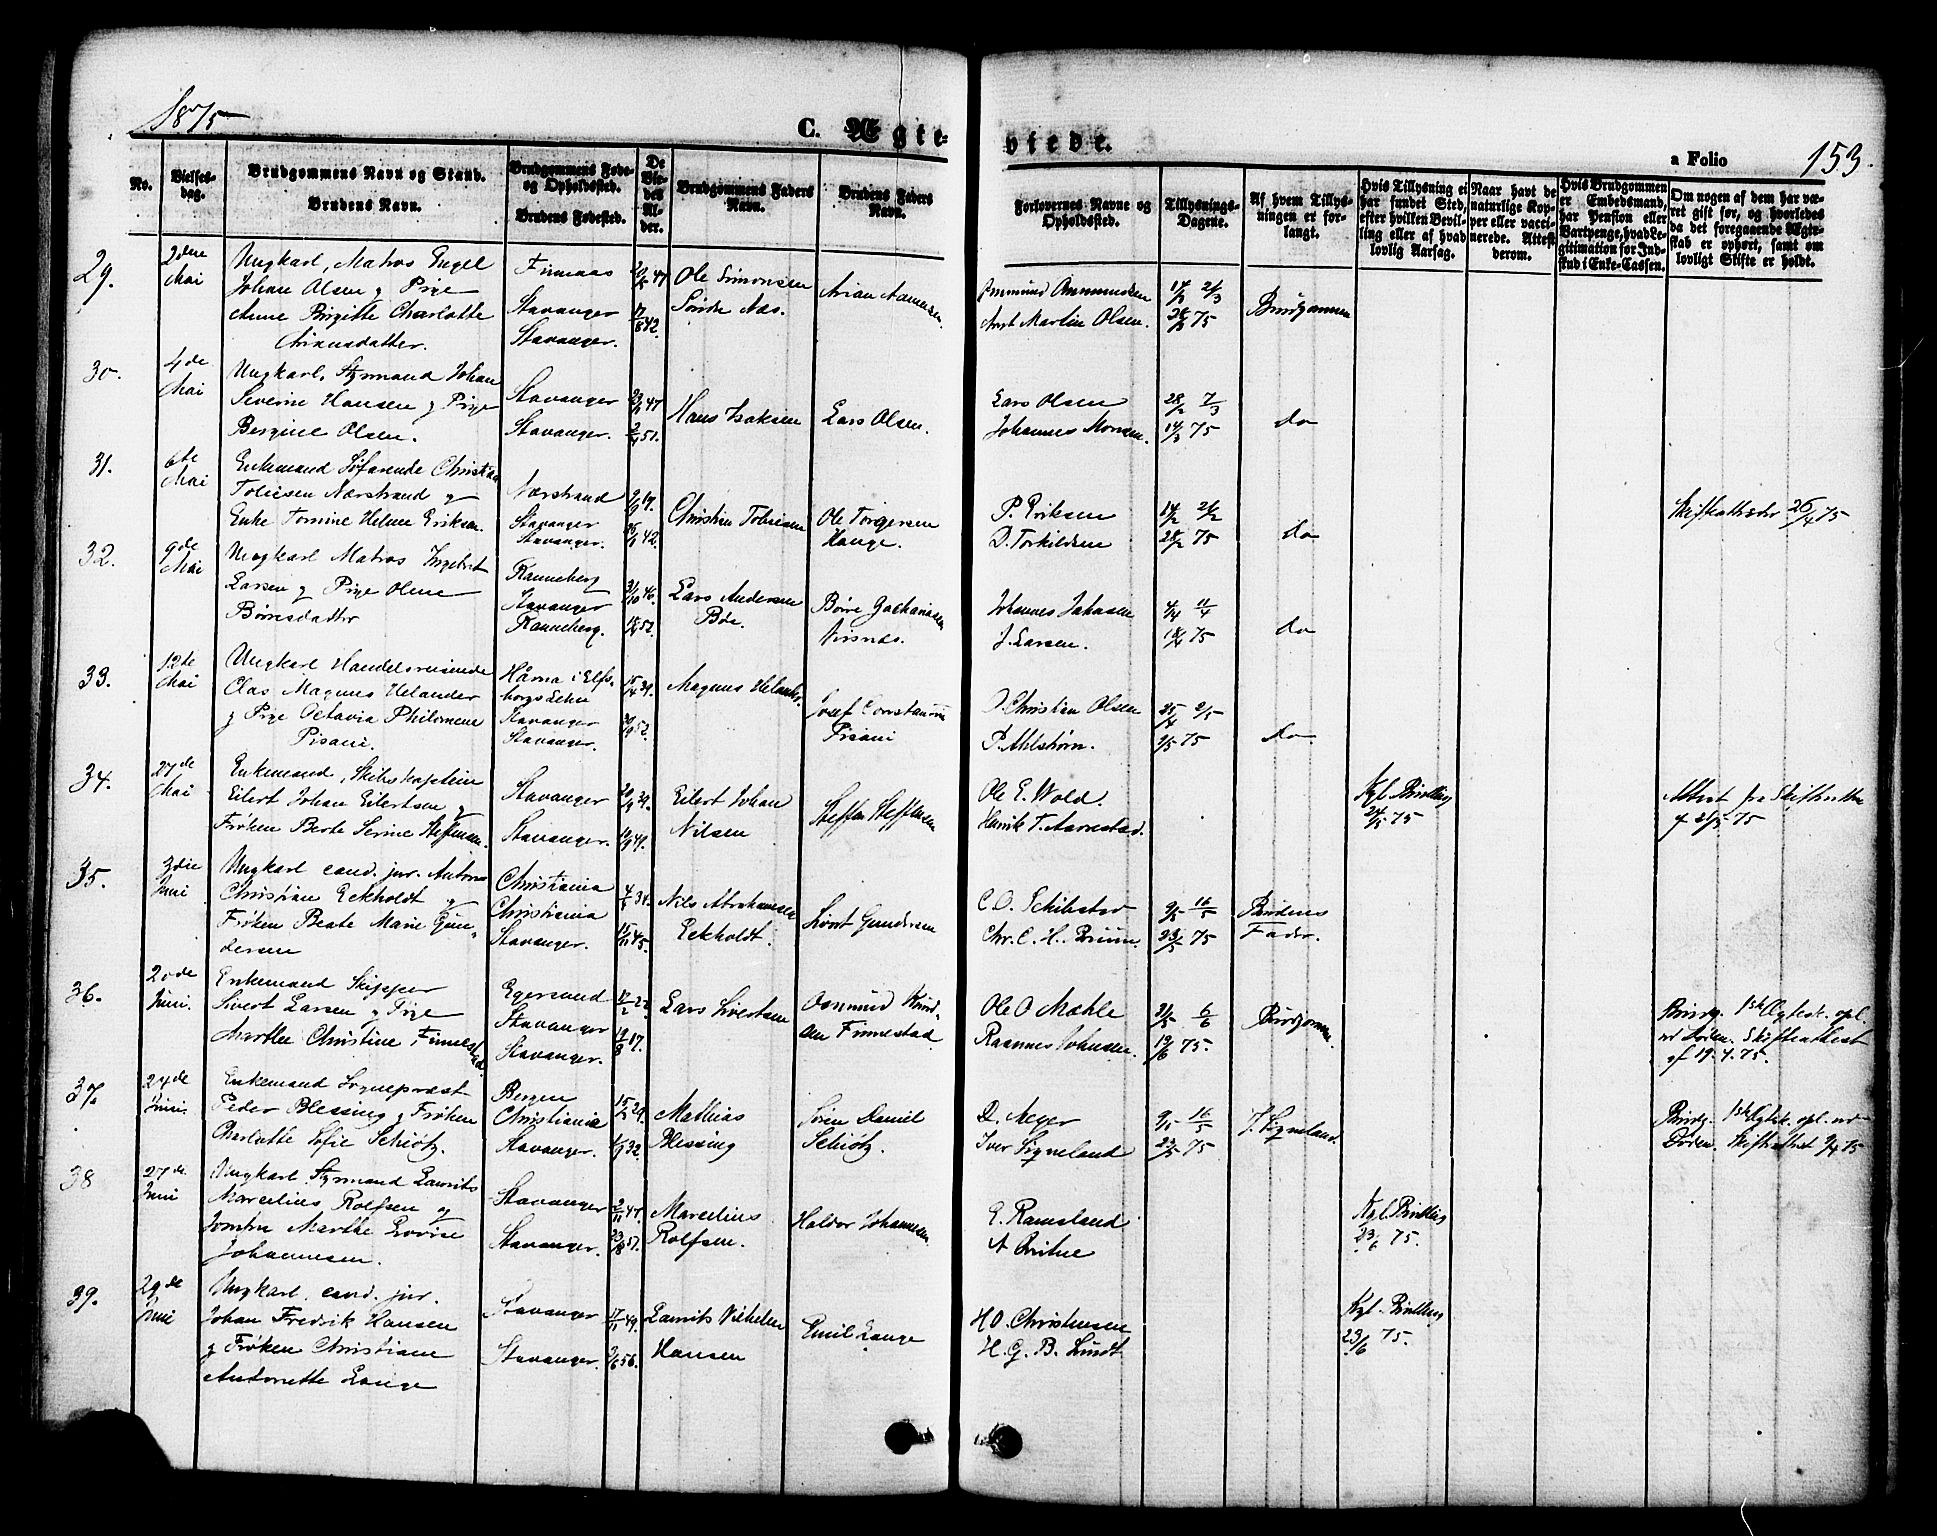 1875
C. Ægte-
viede.
a Folio 153.
No.
Vielses-
dag.
Brudgommens Navn og Stand.
Brudens Navn.
Brudgommens Føde-
og Opholdssted.
Brudens Fødested.
De
Vie-
des
Al-
der.
Brudgommens Faders
Navn.
Brudens Faders
Navn.
Forlovernes Navne og
Opholdssted.
Tillysnings-
Dagene.
Af hvem Tillys-
ningen er for-
langt.
Hvis Tillysning ei
har fundet Sted,
efter hvilken Bevil-
ling eller af hvad
lovlig Aarsag.
Naar havt de
naturlige Kop-
per eller vacci-
nerede. Attest
derom.
Hvis Brudgommen
er Embedsmand,
har Pension eller
Vartpenge, hvad Le-
gitimation for Ind-
skud i Enke-Cassen.
Om nogen af dem har væ-
ret gift før, og hvorledes
da det foregaaende Ægte-
skab er ophørt, samt om
lovligt Skifte er holdt.
29.
2den
Mai
Ungkarl, Matros Engel
Johan Olsen og Pige
Anne Birgitte Charlotte
Ariansdatter.
Finnaas
Stavanger
Stavanger.
17/8 42.
Ole Simonsen
Søndre Aas.
Arian Aanensen.
Ammund Ammundsen
Martin Olsen.
14/2 21/3
28/2 75
Brudgommen
30.
4de
Mai
Ungkarl, Styrmand Johan
Severin Hansen og Pige
Bergine Olsen.
Stavanger
Stavanger.
51.
Hans Isaksen
Lars Olsen.
Lars Olsen
Johannes Monsen.
28/2 7/3
14/3 75
do
31.
6te
Mai
Enkemand Søfarende Christian
Tobiesen Nærstrand og
Enke Tomine Helene Eriksen.
Nærstrand
Stavanger
Stavanger.
42.
Christian Tobiesen
Ole Torgersen
Hauge.
P. Eriksen
D. Torkildsen
14/2 21/2
28/2 75
do
Skifteattest 26/4 75
32.
9de
Mai
Ungkarl Matros Ingebret
Larsen og Pige Oline
Børresdatter
Ranneberg
Stavanger
Ranneberg.
31/10 46.
18/4 52.
Lars Andersen
Bøe.
Børre Zachariasen
Visnæs.
Johannes Johnsen
J. Larsen.
4/4 11/4
18/4 75
do
33.
12te
Mai
Ungkarl Handelsreisende
Clas Magnus Helander
og Pige Octavia Philomene
Pisani.
Hårna i Elfs-
borgs Lehn
Stavanger
Stavanger.
15/4 39.
20/9 52.
Magnus Helander.
Josef Constantin
Pisani
O. Christian Olsen
P. Ahlstrøm.
25/4 2/5
9/5 75
do.
34.
27de
Mai
Enkemand, Skibskaptein
Eilert Johan Eilertsen og
Frøken Berte Serine Steffensen.
Stavanger
Stavanger.
20/9 39.
19/9 49.
Eilert Johan
Nilsen
Steffen Steffensen
Ole E. Wold.
Henrik T. Aarrestad.
Kgl. Bevilling
24/5 75
Attest fra Skifteretten
af 21/5 75
35.
3die
Juni
Ungkarl cand. jur. Anton
Christian Eckholdt og
Frøken Beate Marie Gun-
dersen
Christiania
Christiania
Stavanger.
15/11 45.
Nils Abrahamsen
Eckholdt.
Sivert Gundersen
C. O. Schibstad
Chr. C. H. Bruun.
9/5 16/5
23/5 75
Brudens
Fader.
36.
20de
Juni.
Enkemand Skipper
Sivert Larsen og Pige
Marthe Christine Finnestad.
Egersund
Stavanger
Stavanger.
12/2 22.
19/8 17.
Lars Sivertsen
Osmund Knud-
sen Finnestad
Ole O Mæhle
Rasmus Johnsen.
31/5 6/6
19/6 75.
Brudgommen.
Brudg. 1ste Ægtesk. opl.
ved Døden. Skifteattest
af 19. 4. 75.
37.
24de
Juni.
Enkemand Sognepræst
Peder Blessing og Frøken
Charlotte Sofie Schiøtz.
Bergen
Christiania
Stavanger.
15/2 29.
32.
Mathias
Blessing
Søren Daniel
Schiøtz.
D. Meyer
Iver Svneland
9/5 16/5
23/5 75
J. Svneland.
Brudg. 1ste Ægtesk. opl. ved
Døden. Skifteattest 9/4 75
38
27de.
Juni
Ungkarl Styrmand Laurits
Marcelius Rolfsen og
Jomfru Marthe Lovise
Johannesen.
Stavanger
Stavanger.
2/11 47.
23/8 57.
Marcelius
Rolfsen.
Haldor Johannesen.
E. Ramsland
Kgl. Bevilling
23/6 75.
39.
29de
Juni
Ungkarl. cand. jur.
Johan Fredrik Hansen
og Frøken Christiane
Antonette Lange
Stavanger
Stavanger.
17/11 49.
2/6 56.
Laurits Vilhelm
Hansen
Emil Lange
H O. Christensen
H. G. B. Sundt
Kgl. Bevilling
23/6 75.